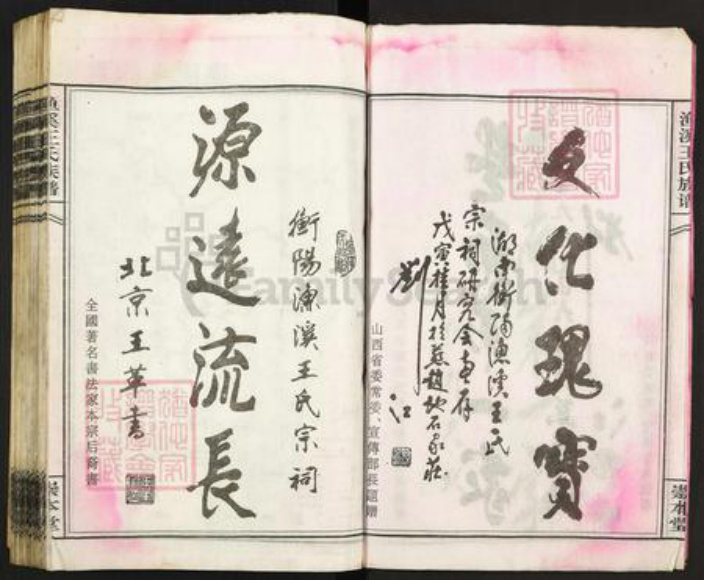 漁溪王氏族譜
崇本堂
文化瑰寶
湖南衡陽漁溪王氏
宗祠研究會惠存
戊寅桂月於燕趙地石家莊
劉江
山西省委常委、宣傳部長題贈
衡陽漁溪王氏宗祠
源遠流長
北京王革書
全國著名書法家本宗后裔書
漁溪王氏族譜
崇本堂
FamilySearch